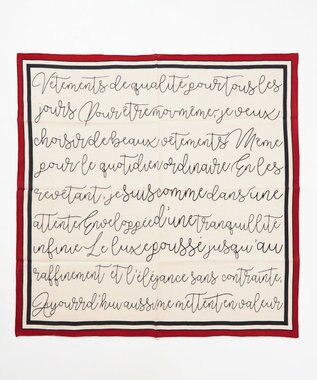 Vêtements de qualité pour tous les
jours Pour être moi-même, je veux
choisir de beaux vêtements Même
pour le quotidien ordinaire En les
revêtant, je suis comme dans une
attente Enveloppée d'une tranquillité
infinie Le luxe poussé jusqu'au
raffinement et l'élégance sans contrainte,
Aujourd'hui aussi, me mettent en valeur